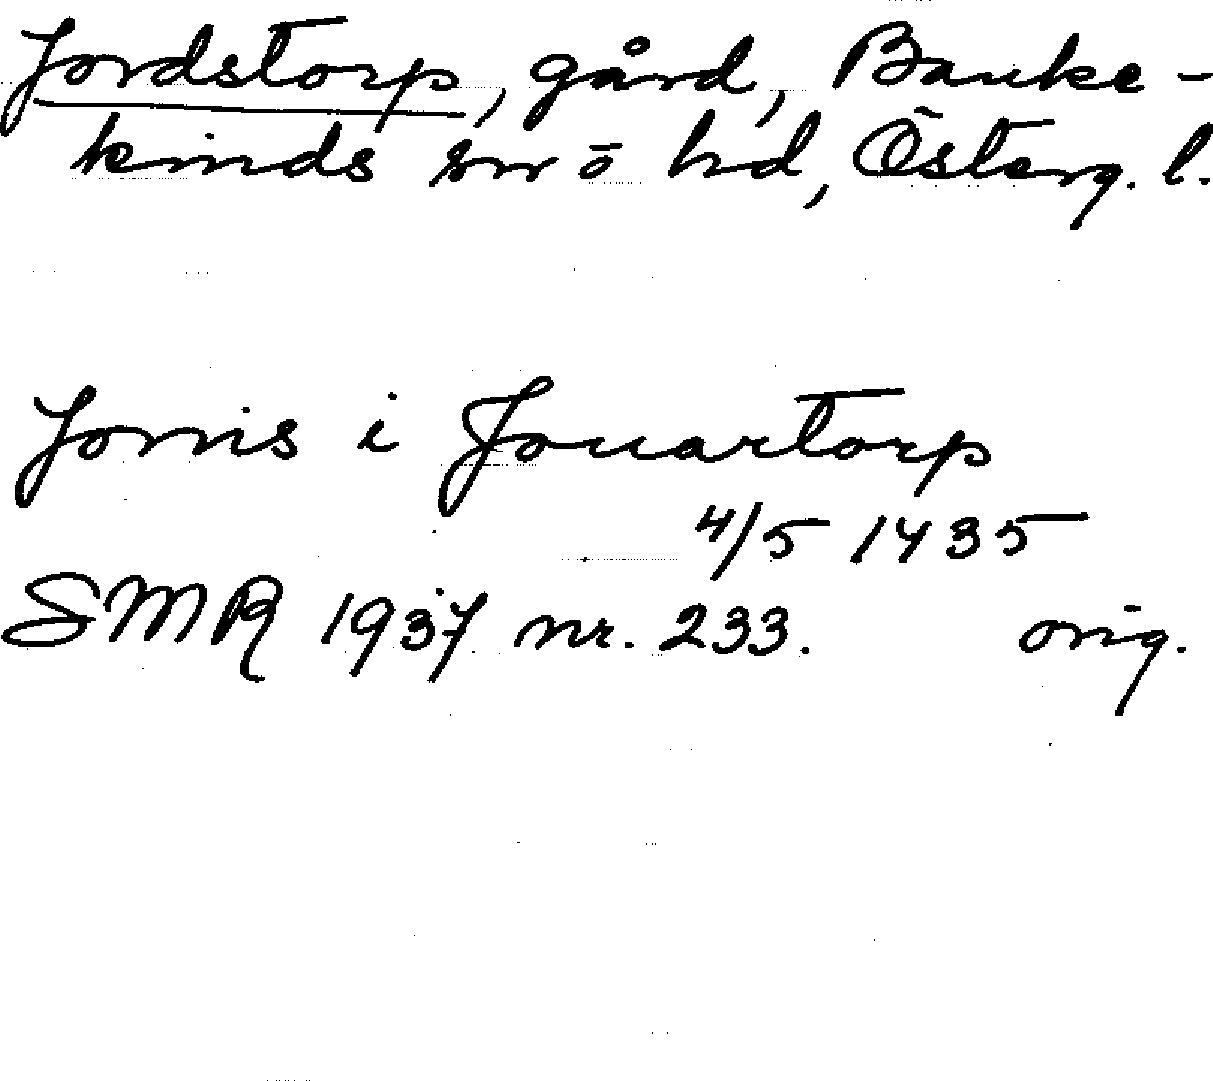 Jordstorp, gård, Banke-
kinds sn o hd, Österg. l.
Jonis i Jouartorp
4/5 1435
SMR 1937 nr. 233. orig.